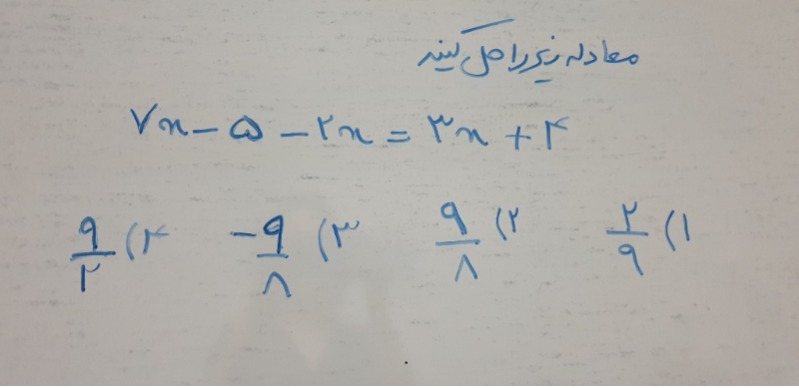 معادله زیر را حل کنید
۷x - ۵ - ۲x = ۳x + ۴
۱) ۲/۹ ۲) ۹/۸ ۳) -۹/۸ ۴) ۹/۲